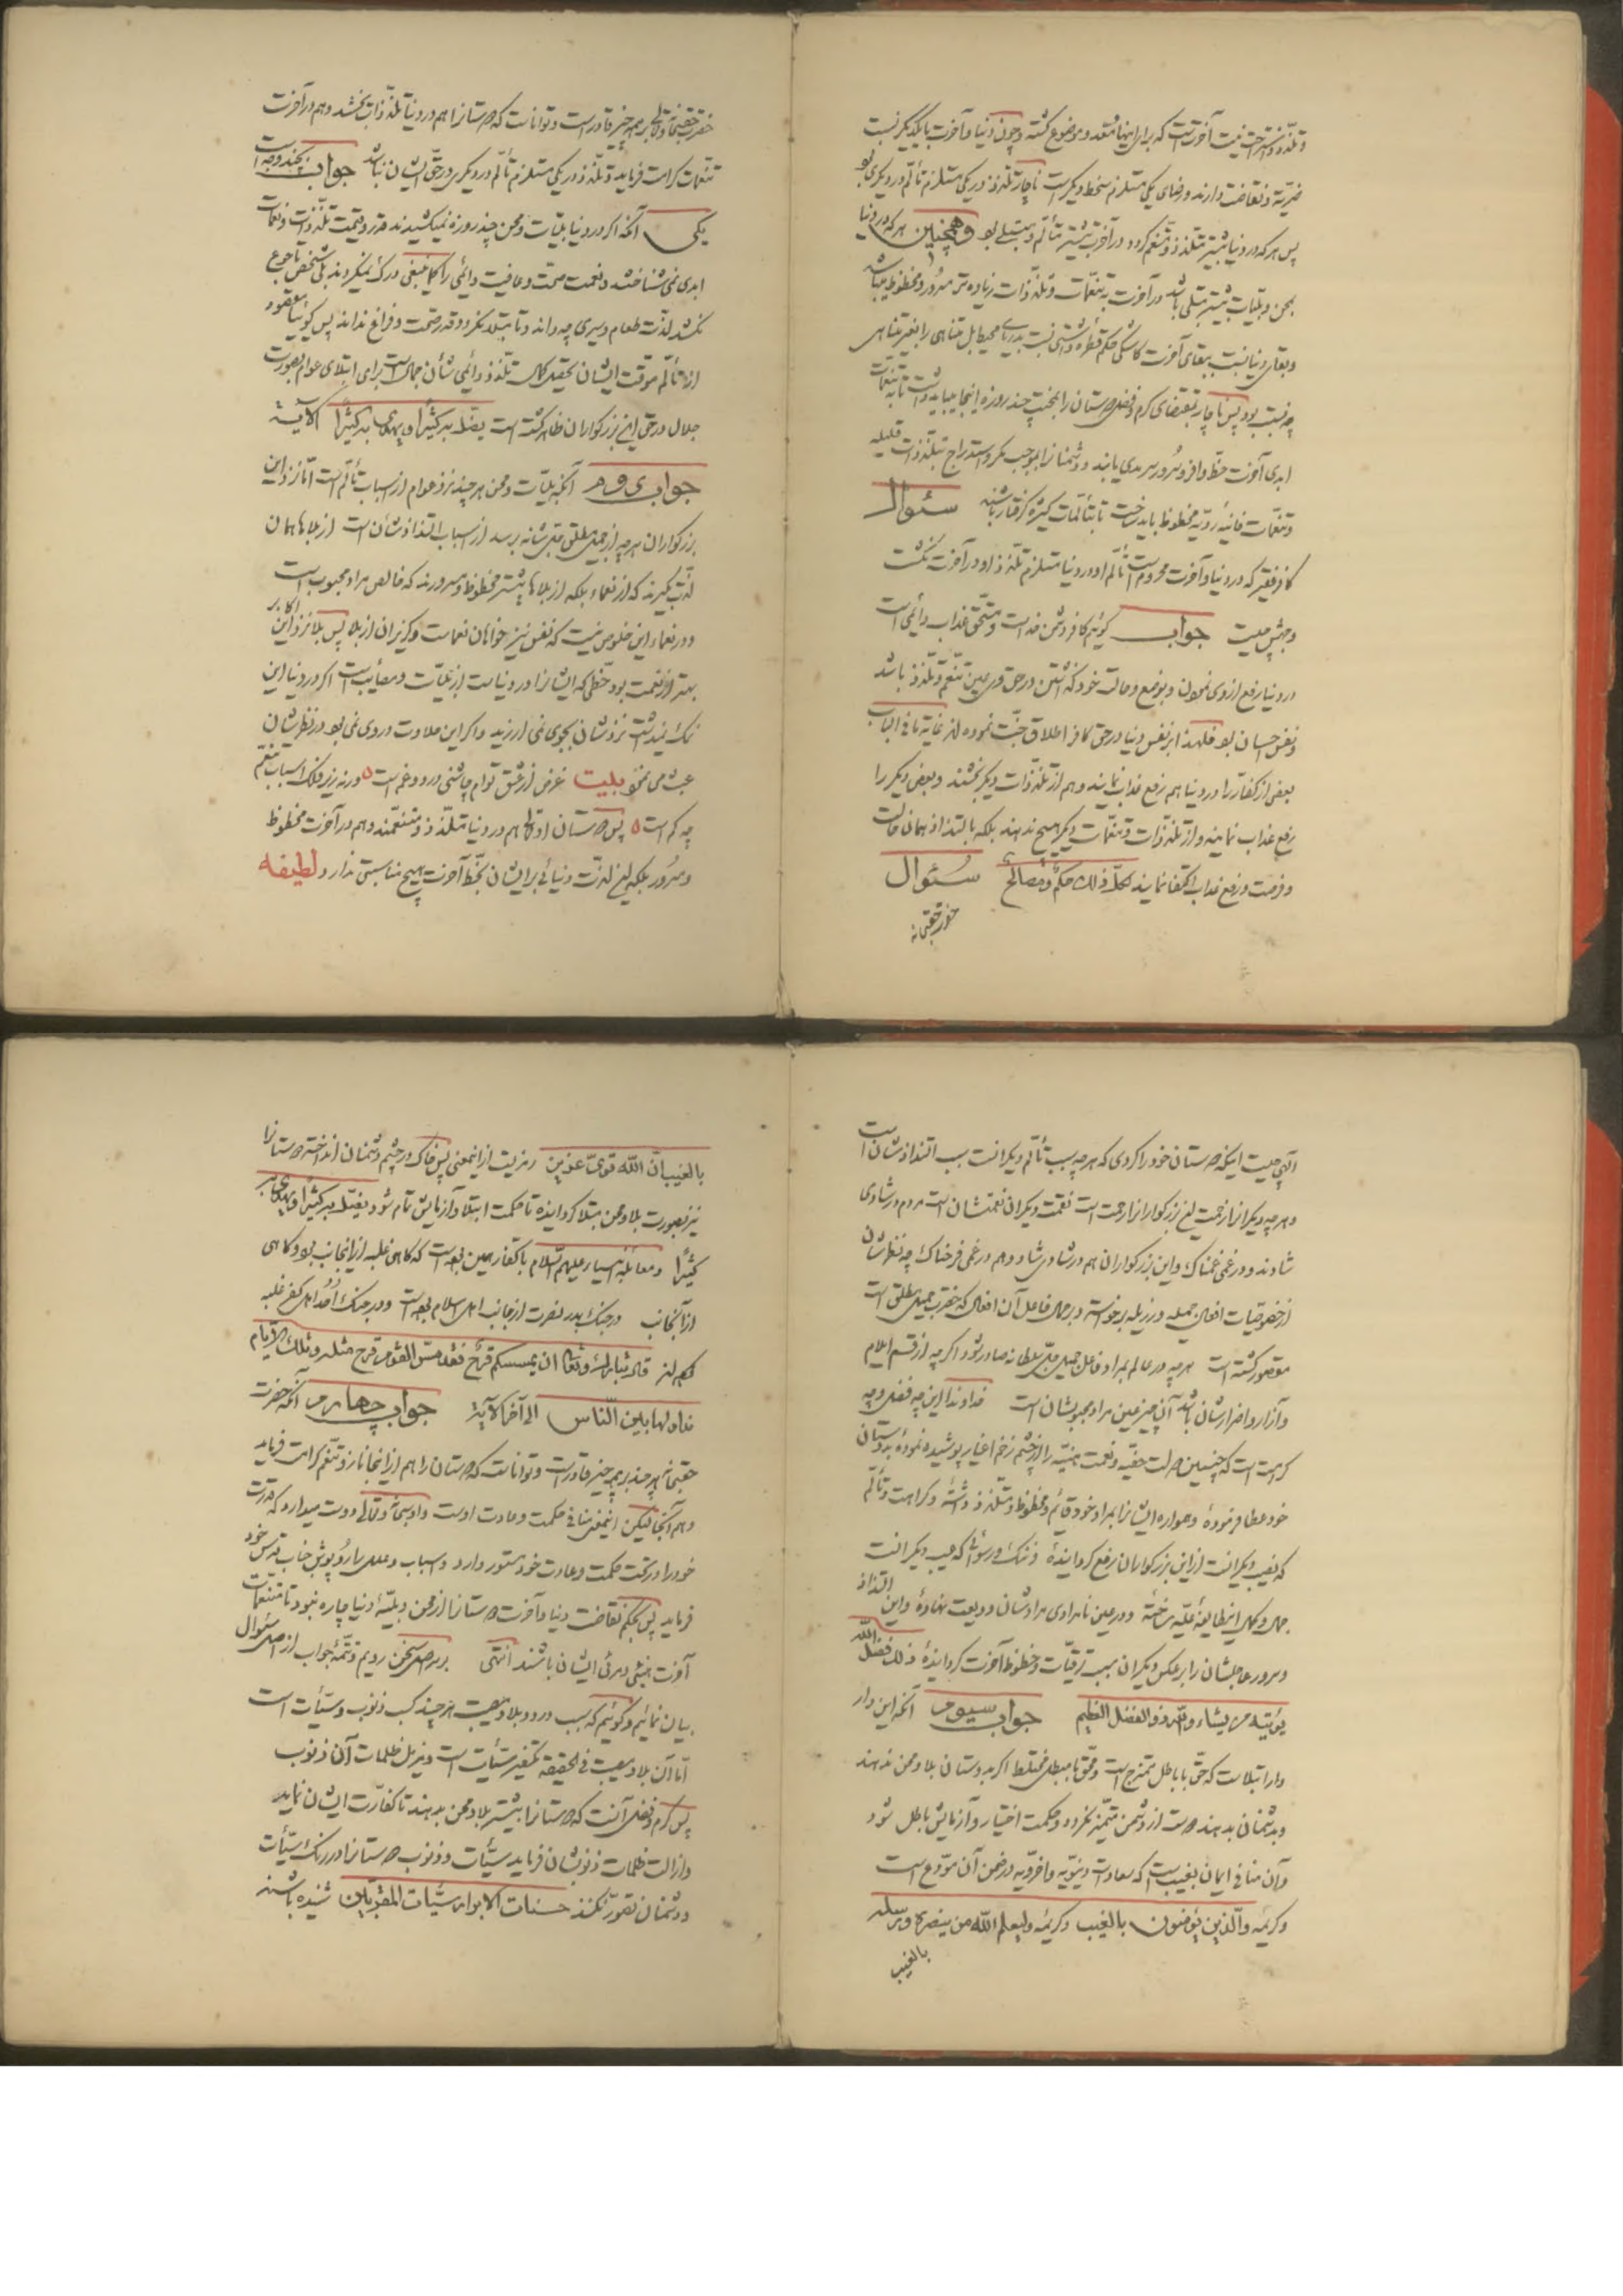 و تلذذ و استراحت نیست آخرتست که برای اینها معد و موضوع گشته و چون دنیا و آخرت با یکدیگر نسبت
ضریه و نقاضت دارند و رضای یکی مستلزم سخط دیگریست ناچار تلذذ در یکی مستلزم تألم در دیگری بود
پس هر که در دنیا بیشتر متلذذ و متنعم گردد در آخرت بیشتر متألم و مبتلی بود وهمچنین هر که در دنیا
بمحن و بلیات بیشتر مبتلی باشد در آخرت به تنعمات و تلذذات زیاده تر مسرور و محظوظ میباشد
و بقای دنیا نسبت ببقای آخرت کاشکی حکم قطره داشتی نسبت بدریای محیط بل متناهی را بغیر متناهی
چه نسبت بود پس ناچار بمقتضای کرم و فضل دوستان را بمحنت چند روزه اینجا میباید داشت تا به تنعمات
ابدی آخرت حظ وافر و سرور سرمدی یابند و دشمنانرا بموجب مکر و استدراج تبلذذات قلیله
و تنعمات فانیه ردیه محظوظ باید ساخت تا بتألمات کثیره گرفتار باشند سئوال
کافر فقیر که در دنیا و آخرت محروم است تألم او در دنیا مستلزم تلذذ او در آخرت نگشت
وجهش چیست جواب گوئیم کافر دشمن خداست و مستحق عذاب دائمی است
در دنیا رفع از وی نمودن و بوضع و حالت خود گذاشتن در حق وی عین تنعم و تلذذ باشد
و نفس حسبان بود فلهذا بر نفس دنیا در حق کافر اطلاق جنت نموده اند غایة ما فی الباب
بعضی از کفار را در دنیا هم رفع عذاب نمایند و هم از تلذذات دیگر بخشند و بعضی دیگر را
رفع عذاب نمایند و از تلذذات و تنعمات دیگر هیچ ندهند بلکه بالتذاذ همان حالت
و فرصت و رفع عذاب اکتفا نمایند لکل ذلک حکم و مصالح سئوال
حضرت حقسبحانه
حضرت حقسبحانه و تعالی بر همه چیز قادر است و تواناست که دوستانرا هم در دنیا تلذذات بخشد و هم در آخرت
تنعمات کرامت فرماید و تلذذ در یکی مستلزم تألم در دیگری در حق ایشان نباشد جواب بچند وجه است
یکی آنکه اگر در دنیا بلیات و محن چند روزه نمیکشیدند قدر و قیمت تلذذات و نعمات
ابدی نمی شناختند و نعمت صحت و عافیت دائمی را کما ینبغی درک نمیکردند بلی شخص تا جوع
نکشد لذت طعام و سیری چه داند و تا مبتلا نگردد قدر صحت و فراغ نداند پس گوئیا مقصود
از تألم موقت ایشان تحصیل کمال تلذذ دائمی شان جمالست برای ابتلای عوام بصورت
جلال در حق این بزرگواران ظاهر گشته است یضل به کثیرا و یهدی به کثیرا الآیة
جواب دوم آنکه بلیات و محن هر چند نزد عوام از اسباب تألم است اما نزد این
بزرگواران هر چه از جمیل مطلق جل شانه برسد از اسباب التذاذ شان است از بلاها همان
لذت میگیرند که از نعماء بلکه از بلاها بیشتر محظوظ و مسرورند که خالص مراد محبوب است
و در نعماء این خلوص نیست که نفس نیز خواهان نعماست و گریزان از بلا پس بلا نزد این اکابر
بهتر از نعمت بود حظی که ایشانرا در دنیاست از بلیات و مصائب است اگر در دنیا این
نمک نمیداشت نزد شان بجوی نمی ارزید و اگر این حلاوت در وی نمی بود در نظر شان
عبث می نمود بیت غرض از عشق توام چاشنی درد و غم است ورنه زیر فلک اسباب تنعم
چه کم است پس دوستان او تعالی هم در دنیا متلذذ و متنعمند و هم در آخرت محظوظ
و مسرور بلکه این لذت دنیائی بر ایشان بحظ آخرت هیچ مناسبتی ندارد لطیفه
الهی چیست اینکه دوستان خود را کردی که هر چه سبب تألم دیگرانست سبب التذاذ شان است
و هر چه دیگرانرا زحمت این بزرگوارانرا رحمت است نقمت دیگران نعمت شان است مردم در شادی
شادند و در غمی غمناک و این بزرگواران هم در شادی شاد و هم در غمی فرحناک چه نظر شان
از خصوصیات افعال جمیله و رذیله برخواسته و بر جمال فاعل آن افعال که حضرت جمیل مطلق است
مقصور گشته است هر چه در عالم بمراد فاعل جمیل جل سلطانه صادر شود اگر چه از قسم ایلام
و آزار و اضرار شان باشد آن چیز عین مراد محبوب شان است خداوندا این چه فضل و چه
کرامت است که چنین دولت خفیه و نعمت هنیه را از چشم زخم اغیار پوشیده نموده بدوستان
خود عطا فرموده و همواره ایشانرا بمراد خود قائم و محظوظ و متلذذ داشته و کراهت و تألم
که نصیب دیگرانست از این بزرگواران رفع گردانیده و ننگ و رسوائی که عیب دیگرانست
جمال و کمال این طایفه علیه ساخته و در عین نامرادی مراد شان ودیعت نهاده و این التذاذ
و سرور عاجلشان را بر عکس دیگران سبب ترقیات و حظوظ آخرت گردانیده ذلک فضل الله
یؤتیه من یشاء والله ذوالفضل العظیم جواب سیوم آنکه این دار
دار ابتلاست که حق با باطل ممتزج است و محق با مبطل مختلط اگر بدوستان بلا و محن ندهند
و بدشمنان بدهند دوست از دشمن متمیز نگردد و حکمت اختیار و آزمایش باطل شود
و آن منافی ایمان بغیب است که سعادت دنیویه و اخرویه در ضمن آن مودع است
و کریمه والذین یؤمنون بالغیب و کریمه ولیعلم الله من ینصره ورسله
بالغیب
بالغیب ان الله قوی عزیز رمزیست از اینمعنی پس خاک در چشم دشمنان انداخته دوستانرا
نیز بصورت بلا و محن مبتلا گردانیده تا حکمت ابتلا و آزمایش تمام شود یضل به کثیرا و یهدی به
کثیرا و معامله انبیا علیهم السلام با کفار همین بوده است که گاهی غلبه از اینجانب بود و گاهی
از آنجانب در جنگ بدر نصرت از جانب اهل اسلام بوده است و در جنگ احد اهل کفر غلبه
کرده اند قال تبارک و تعالی ان یمسسکم قرح فقد مس القوم قرح مثله وتلک الایام
نداولها بین الناس الی آخر الآیة جواب چهارم آنکه حضرت
حقسبحانه هر چند بر همه چیز قادر است و تواناست که دوستان را هم از اینجا ناز و تنعم کرامت فرماید
و هم آنجا لیکن اینمعنی منافی حکمت و عادت اوست و او سبحانه و تعالی دوست میدارد که قدرت
خود را در تحت حکمت و عادت خود مستور دارد و اسباب و علل را روپوش جناب قدس خود
فرماید پس بحکم نقاضت دنیا و آخرت دوستانرا از محن و بلیه دنیا چاره نبود تا متنعمات
آخرت هنیئ و مرئ ایشان باشند انتهی بر سر اصل سخن رویم و تتمه جواب از اصل سئوال
بیان نمائیم و گوئیم که سبب درد و بلا و مصیبت هر چند کسب ذنوب و سیئات است
اما آن بلا و مصیبت فی الحقیقه مکفر سیئات است و مزیل ظلمات آن ذنوب
پس کرم و فضل آنست که دوستانرا بیشتر بلا و محن بدهند تا کفارت ایشان نماید
و ازالت ظلمات ذنوبشان فرماید سیئات و ذنوب دوستانرا در رنگ سیئات
و دشمنان تصور نکنند حسنات الابرار سیئات المقربین شنیده باشند